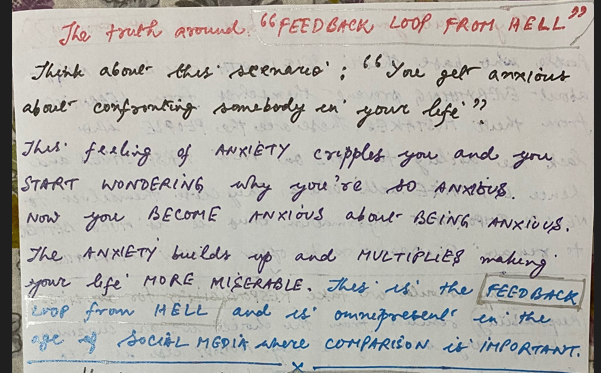 The truth around "FEEDBACK LOOP FROM HELL"
Think about this scenario ; "You get anxious
about confronting somebody in your life"
This feeling of ANXIETY cripples you and you
START WONDERING why you're SO ANXIOUS.
NOW you BECOME ANXIOUS about BEING ANXIOUS.
The ANXIETY builds up and MULTIPLIES making
your life MORE MISERABLE. This is the FEEDBACK
LOOP from HELL and is omnipresent in the
age of SOCIAL MEDIA where COMPARISON is IMPORTANT.